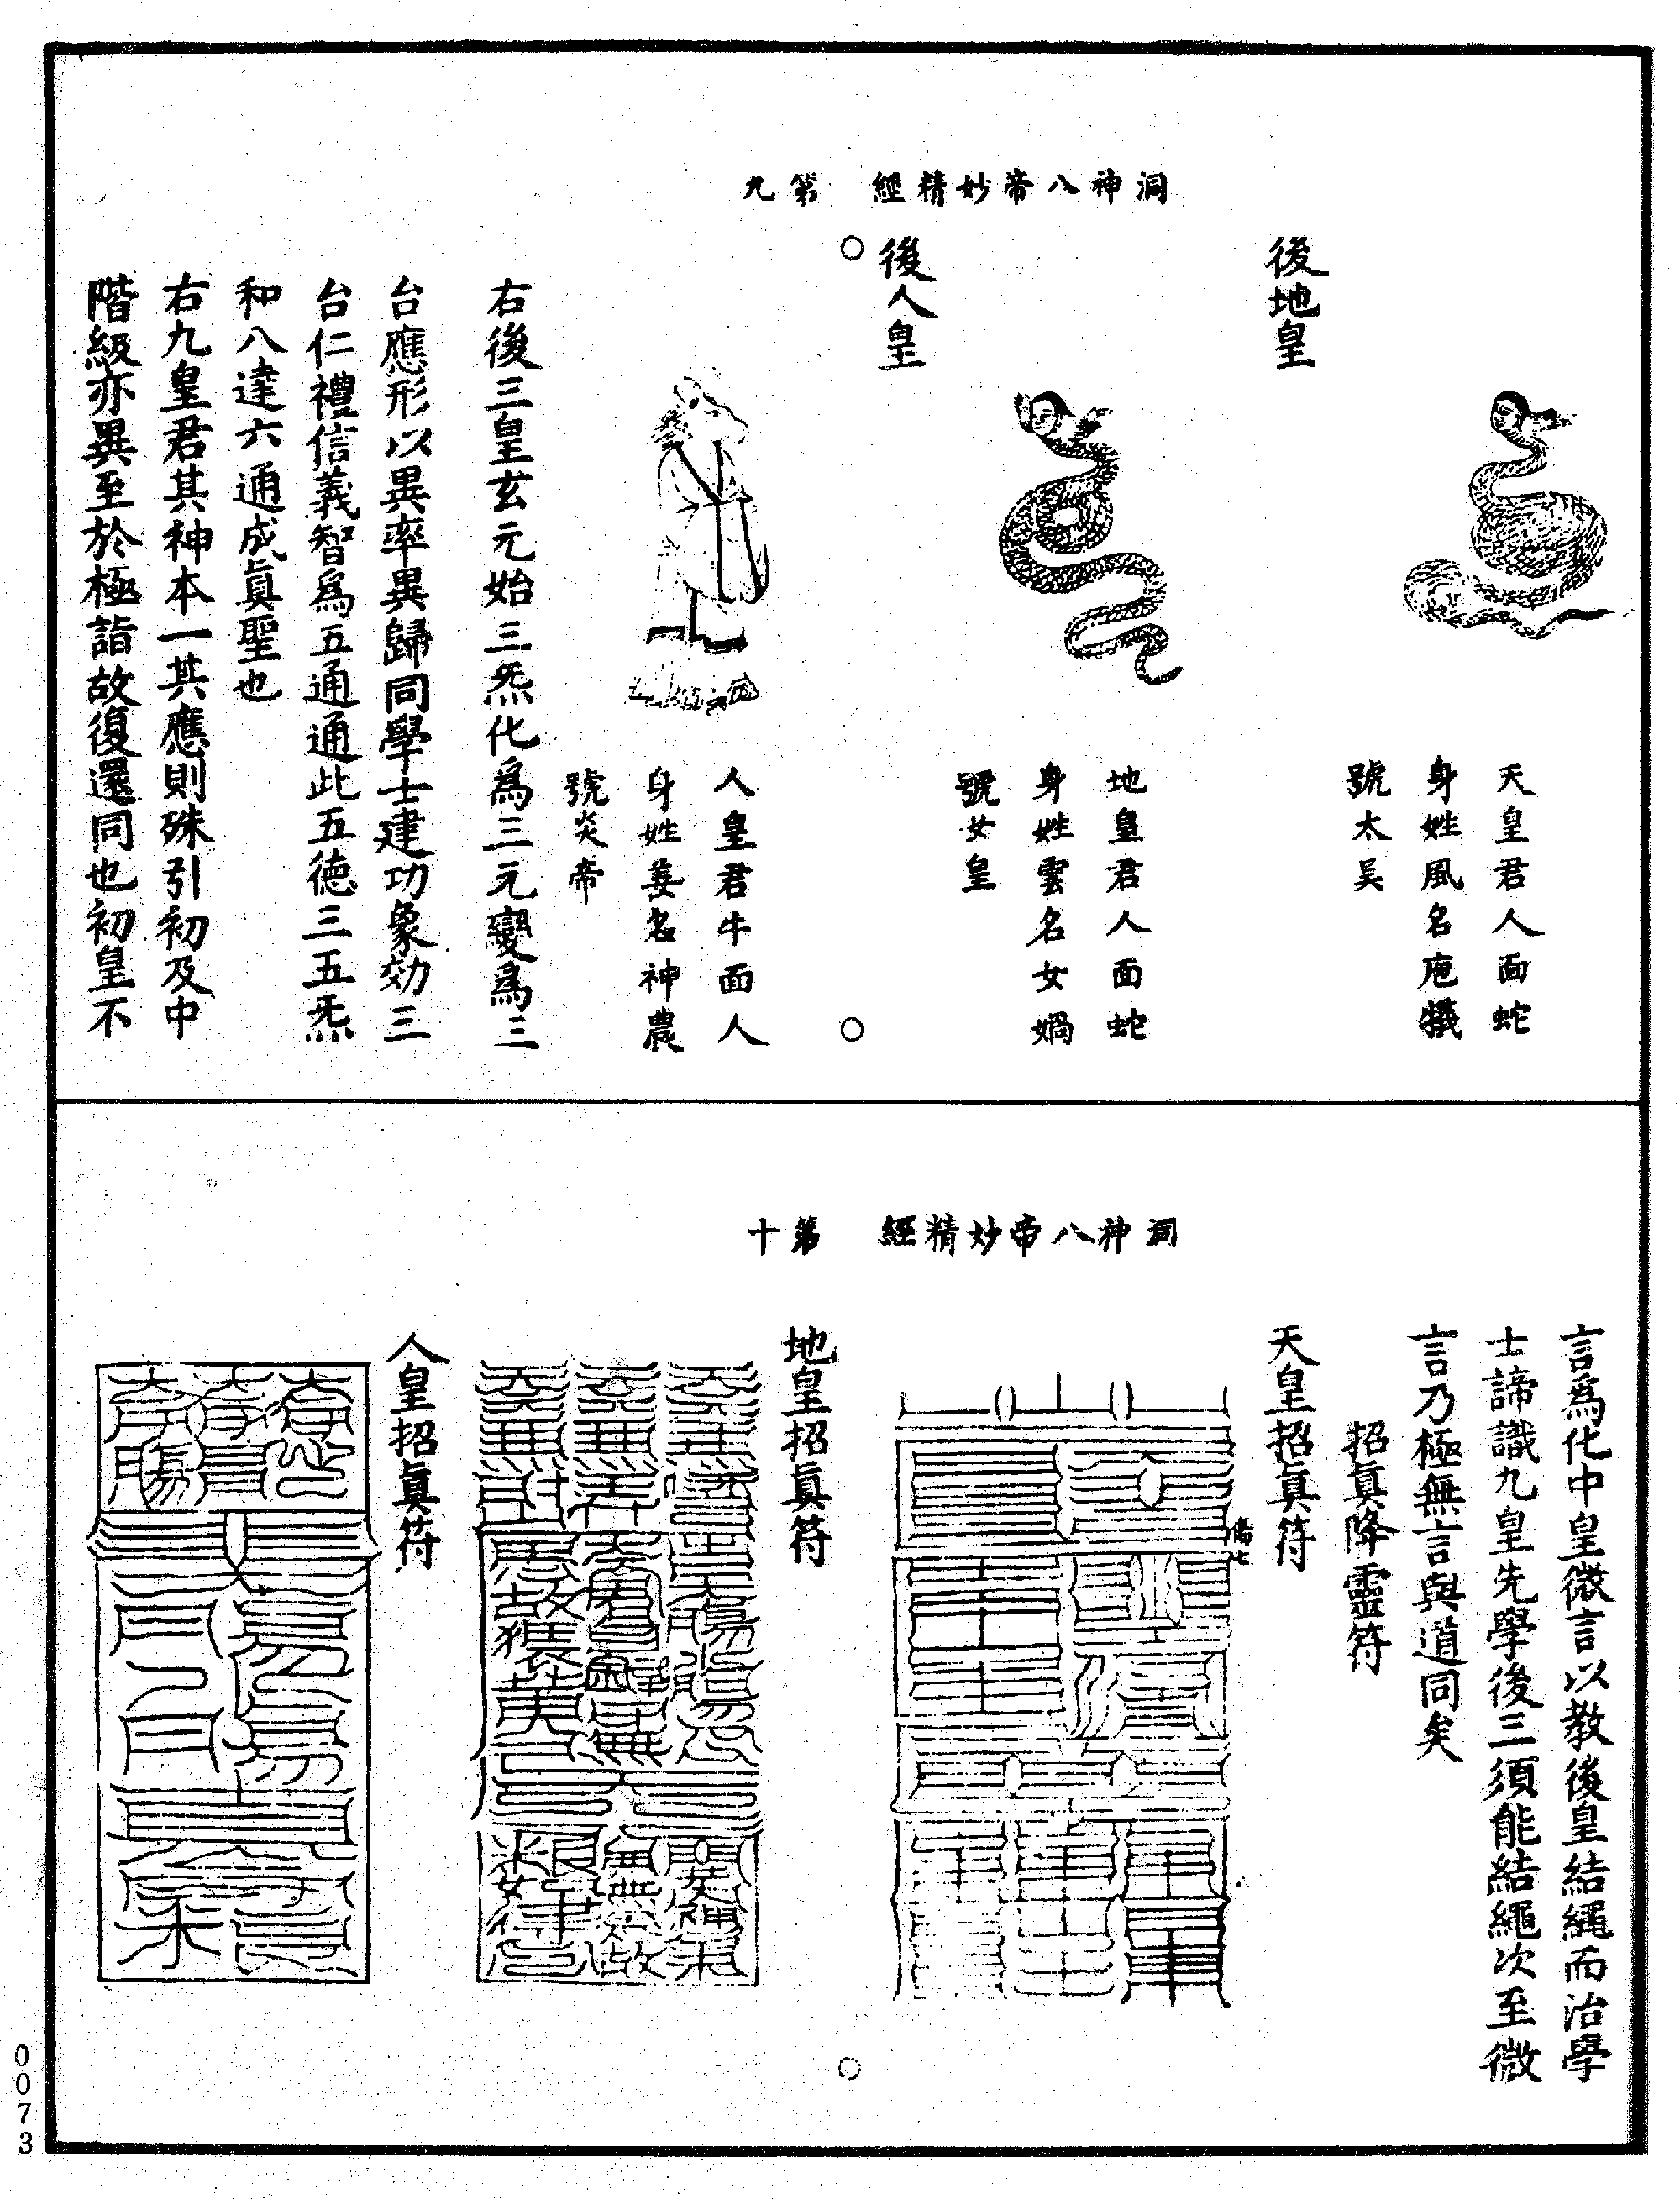 洞神八帝妙精經 第九
天皇君人面蛇
身姓風名庖犧
號太昊
後地皇
地皇君人面蛇
身姓雲名女媧
號女皇
後人皇
人皇君牛面人
身姓姜名神農
號炎帝
右後三皇玄元始三炁化為三元變為三
台應形以異率異歸同學士建功象効三
台仁禮信義智為五通通此五德三五炁
和八達六通成真聖也
右九皇君其神本一其應則殊引初及中
階級亦異至於極詣故復還同也初皇不
洞神八帝妙精經 第十
言為化中皇微言以教後皇結繩而治學
士諦識九皇先學後三須能結繩次至微
言乃極無言與道同矣
招真降靈符
天皇招真符
傷七
地皇招真符
人皇招真符
0073